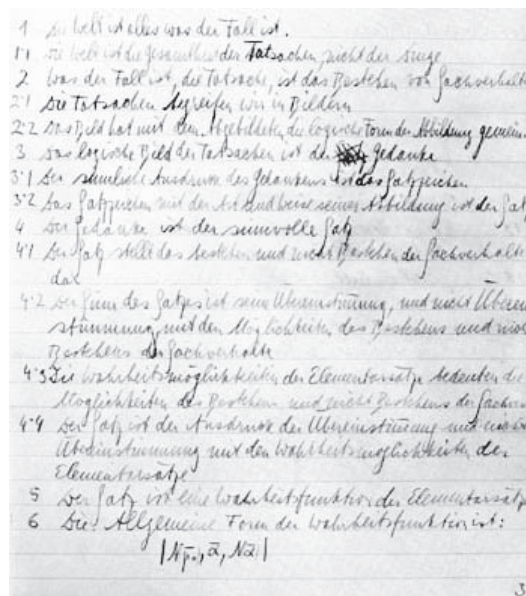 1 Die Welt ist alles was der Fall ist.
1·1 Die Welt ist die Gesamtheit der Tatsachen, nicht der Dinge
2 Was der Fall ist, die Tatsache, ist das Bestehen von Sachverhalte
2·1 Die Tatsachen begreifen wir in Bildern
2·2 Das Bild hat mit dem Abgebildeten die logische Form der Abbildung gemein
3 Das logische Bild der Tatsachen ist der Gedanke
3·1 Der sinnliche Ausdruck des Gedankens ist das Satzzeichen
3·2 Das Satzzeichen mit der Art und Weise seiner Abbildung ist der Satz
4 Der Gedanke ist der sinnvolle Satz
4·1 Der Satz stellt das Bestehen und nicht Bestehen der Sachverhalte
dar
4·2 Der Sinn des Satzes ist seine Übereinstimmung, und nicht Überein
stimmung mit den Möglichkeiten des Bestehens und nicht
Bestehens der Sachverhalte
4·3 Die Wahrheitsmöglichkeiten der Elementarsätze bedeuten die
Möglichkeiten des Bestehens und nicht Bestehens der Sachver
4·4 Der Satz ist der Ausdruck der Übereinstimmung und nicht
Übereinstimmung mit den Wahrheitsmöglichkeiten der
Elementarsätze
5 Der Satz eine Wahrheitsfunktion der Elementarsätze
6 Die Allgemeine Form der Wahrheitsfunktion ist:
3